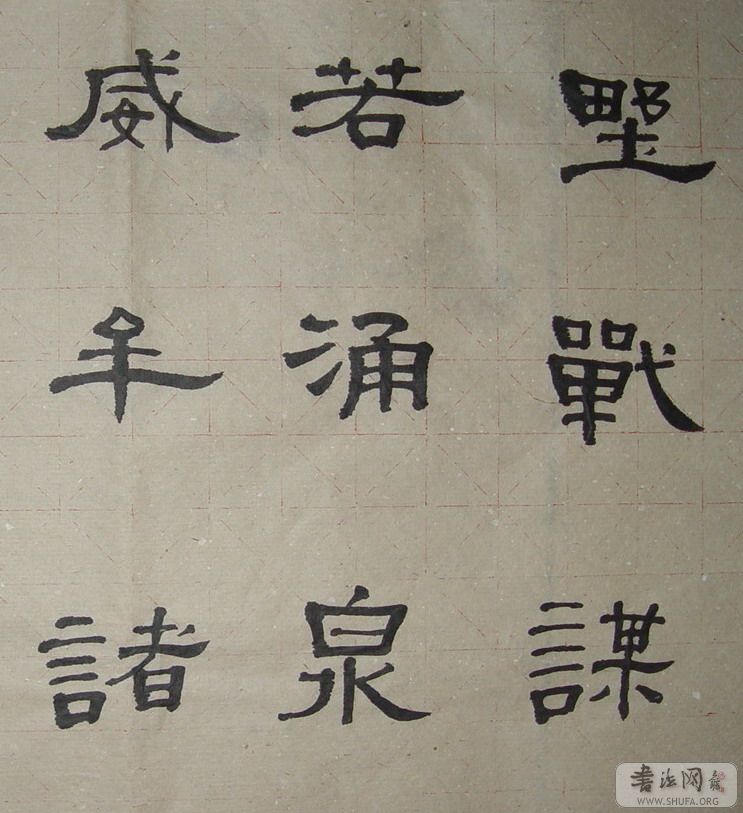 野戰謀
若涌泉
威牟諸
書法网
WWW.SHUFA.ORG